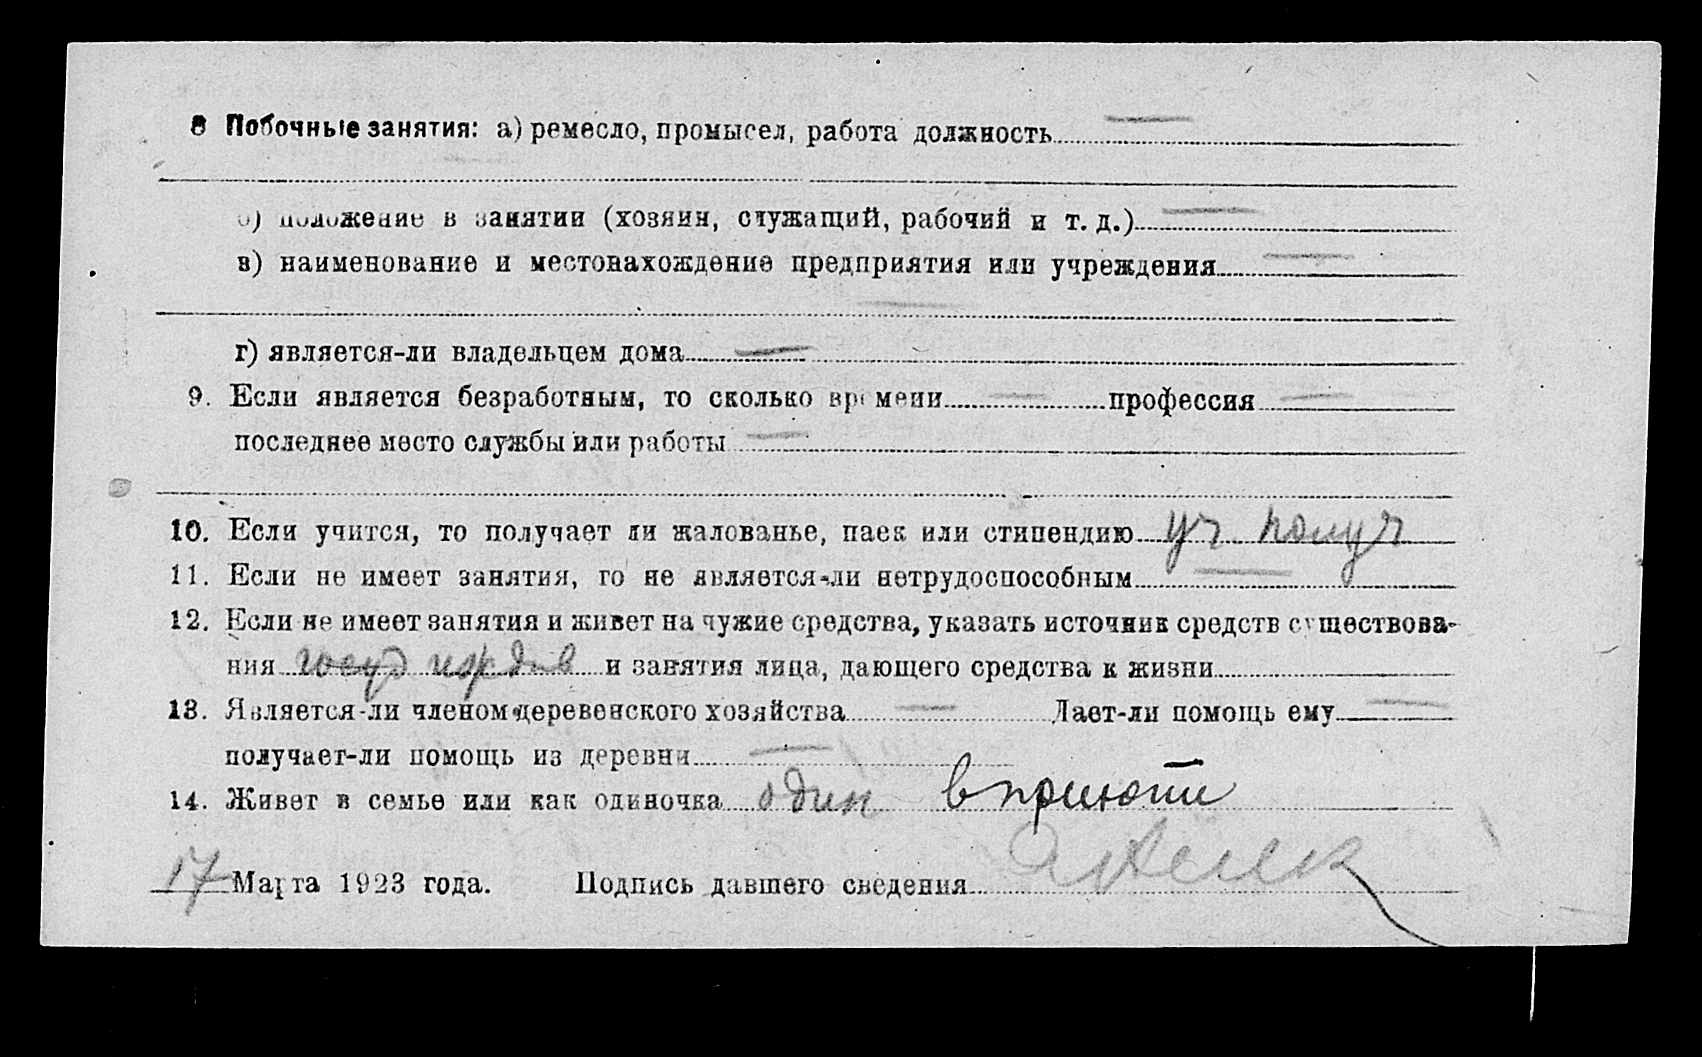 8 Побочные занятия: а) ремесло, промысел, работа должность
б) положение в занятии (хозяин, служащий, рабочий и т. д.)
в) наименование и местонахождение предприятия или учреждения
г) является-ли владельцем дома
9. Если является безработным, то сколько времени профессия
последнее место службы или работы
10. Если учится, то получает ли жалованье, паек или стипендию уч. получ
11. Если не имеет занятия, то не является-ли нетрудоспособным
12. Если не имеет занятия и живет на чужие средства, указать источник средств существова-
ния госуд и занятия лица, дающего средства к жизни
13. Является-ли членом деревенского хозяйства Дает-ли помощь ему
получает-ли помощь из деревни
14. Живет в семье или как одиночка один в приюти
17 Марта 1923 года. Подпись давшего сведения